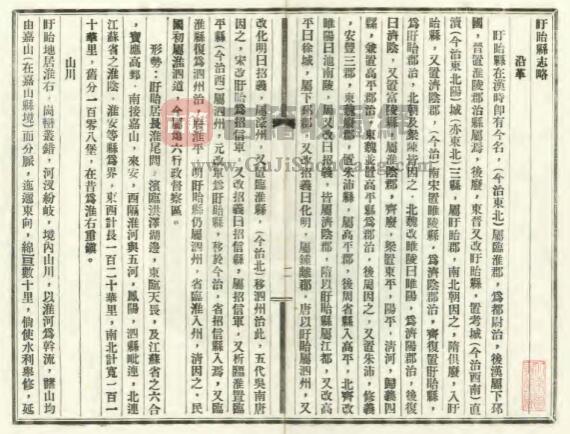 盱眙縣志略
沿革
盱眙縣在漢時即有今名，(今治東北)屬臨淮郡，爲都尉治，後漢屬下邳
國，晉置淮陵郡治縣屬焉，後廢，東晉又改盱眙縣，置考城(今治西南)直
瀆(今治東北陽)城(亦東北)三縣，屬盱眙郡，南北朝因之，隋俱廢，入盱
眙縣，又置濟陰郡，(今治)南宋置睢陵縣，爲濟陰郡治，齊復置盱眙縣，
爲盱眙郡治，北朝及梁陳皆因之，北魏改睢陵曰睢陽，爲濟陽郡治，後復
曰濟陰，又置富陵縣，屬淮陰郡，齊廢，梁置東平，陽平，清河，歸義四
縣，兼置高平郡治，東魏並置高平縣爲郡治，後周因之，又置朱沛，修義
，安豐三郡，東魏廢郡，置朱沛縣，屬高平郡，後周省縣入高平，北齊改
睢陽曰池南陵，屬周又改曰招義，皆屬濟陰郡，隋以盱眙屬江都，又改高
平曰徐城，屬下邳郡，又改招義曰化明，屬鍾離郡，唐以盱眙屬泗州，又
改化明曰招義，屬濠州，又置臨淮縣，(今治北)移泗州治此，五代吳南唐
因之，宋改盱眙爲招信軍，又改招義曰招信縣，屬招信軍，又析臨淮置臨
平縣(今治西)屬泗州，元改軍爲盱眙縣，移於今治，省招信縣入焉，又臨
淮縣復爲泗州治，省淮平，明盱眙縣仍屬泗州，省臨淮入州，清因之，民
國初屬淮泗道，今屬第六行政督察區。
形勢：盱眙居長淮尾閭，濱臨洪澤湖邊，東臨天長，及江蘇省之六合
，寶應高郵，南接嘉山，來安，西隔淮河與五河，鳳陽，泗縣毗連，北連
江蘇省之淮陰，淮安等縣爲界，東西計長一百二十華里，南北計寬一百一
十華里，舊分一百零八堡，在昔爲淮右重鎮。
山川
盱眙地居淮右，岡巒叢錯，河汊紛岐，境內山川，以淮河爲幹流，諸山均
由嘉山(在嘉山縣境)而分脈，迤邐東向，綿亘數十里，倘使水利舉修，延
www.GuJiShuGang.com